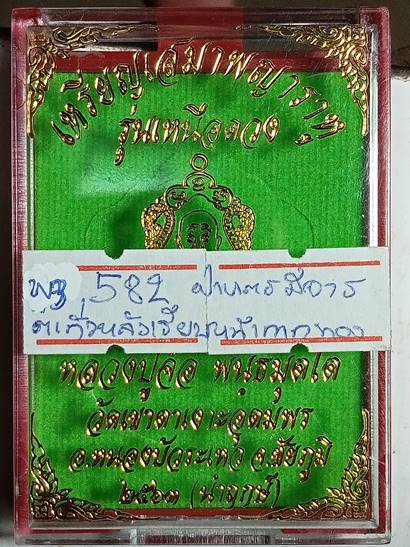 เหรียญเสมาพญาราหู
รุ่นเหนือดวง
582 ฝาบาตร มีจาร
หน้ากากทอง
หลวงปู่ลือ พันธมุตโต
วัดเขาตาเงาะอุดมพร
อ.หนองบัวระเหว จ.ชัยภูมิ
๒๕๖๓ (นำฤกษ์)